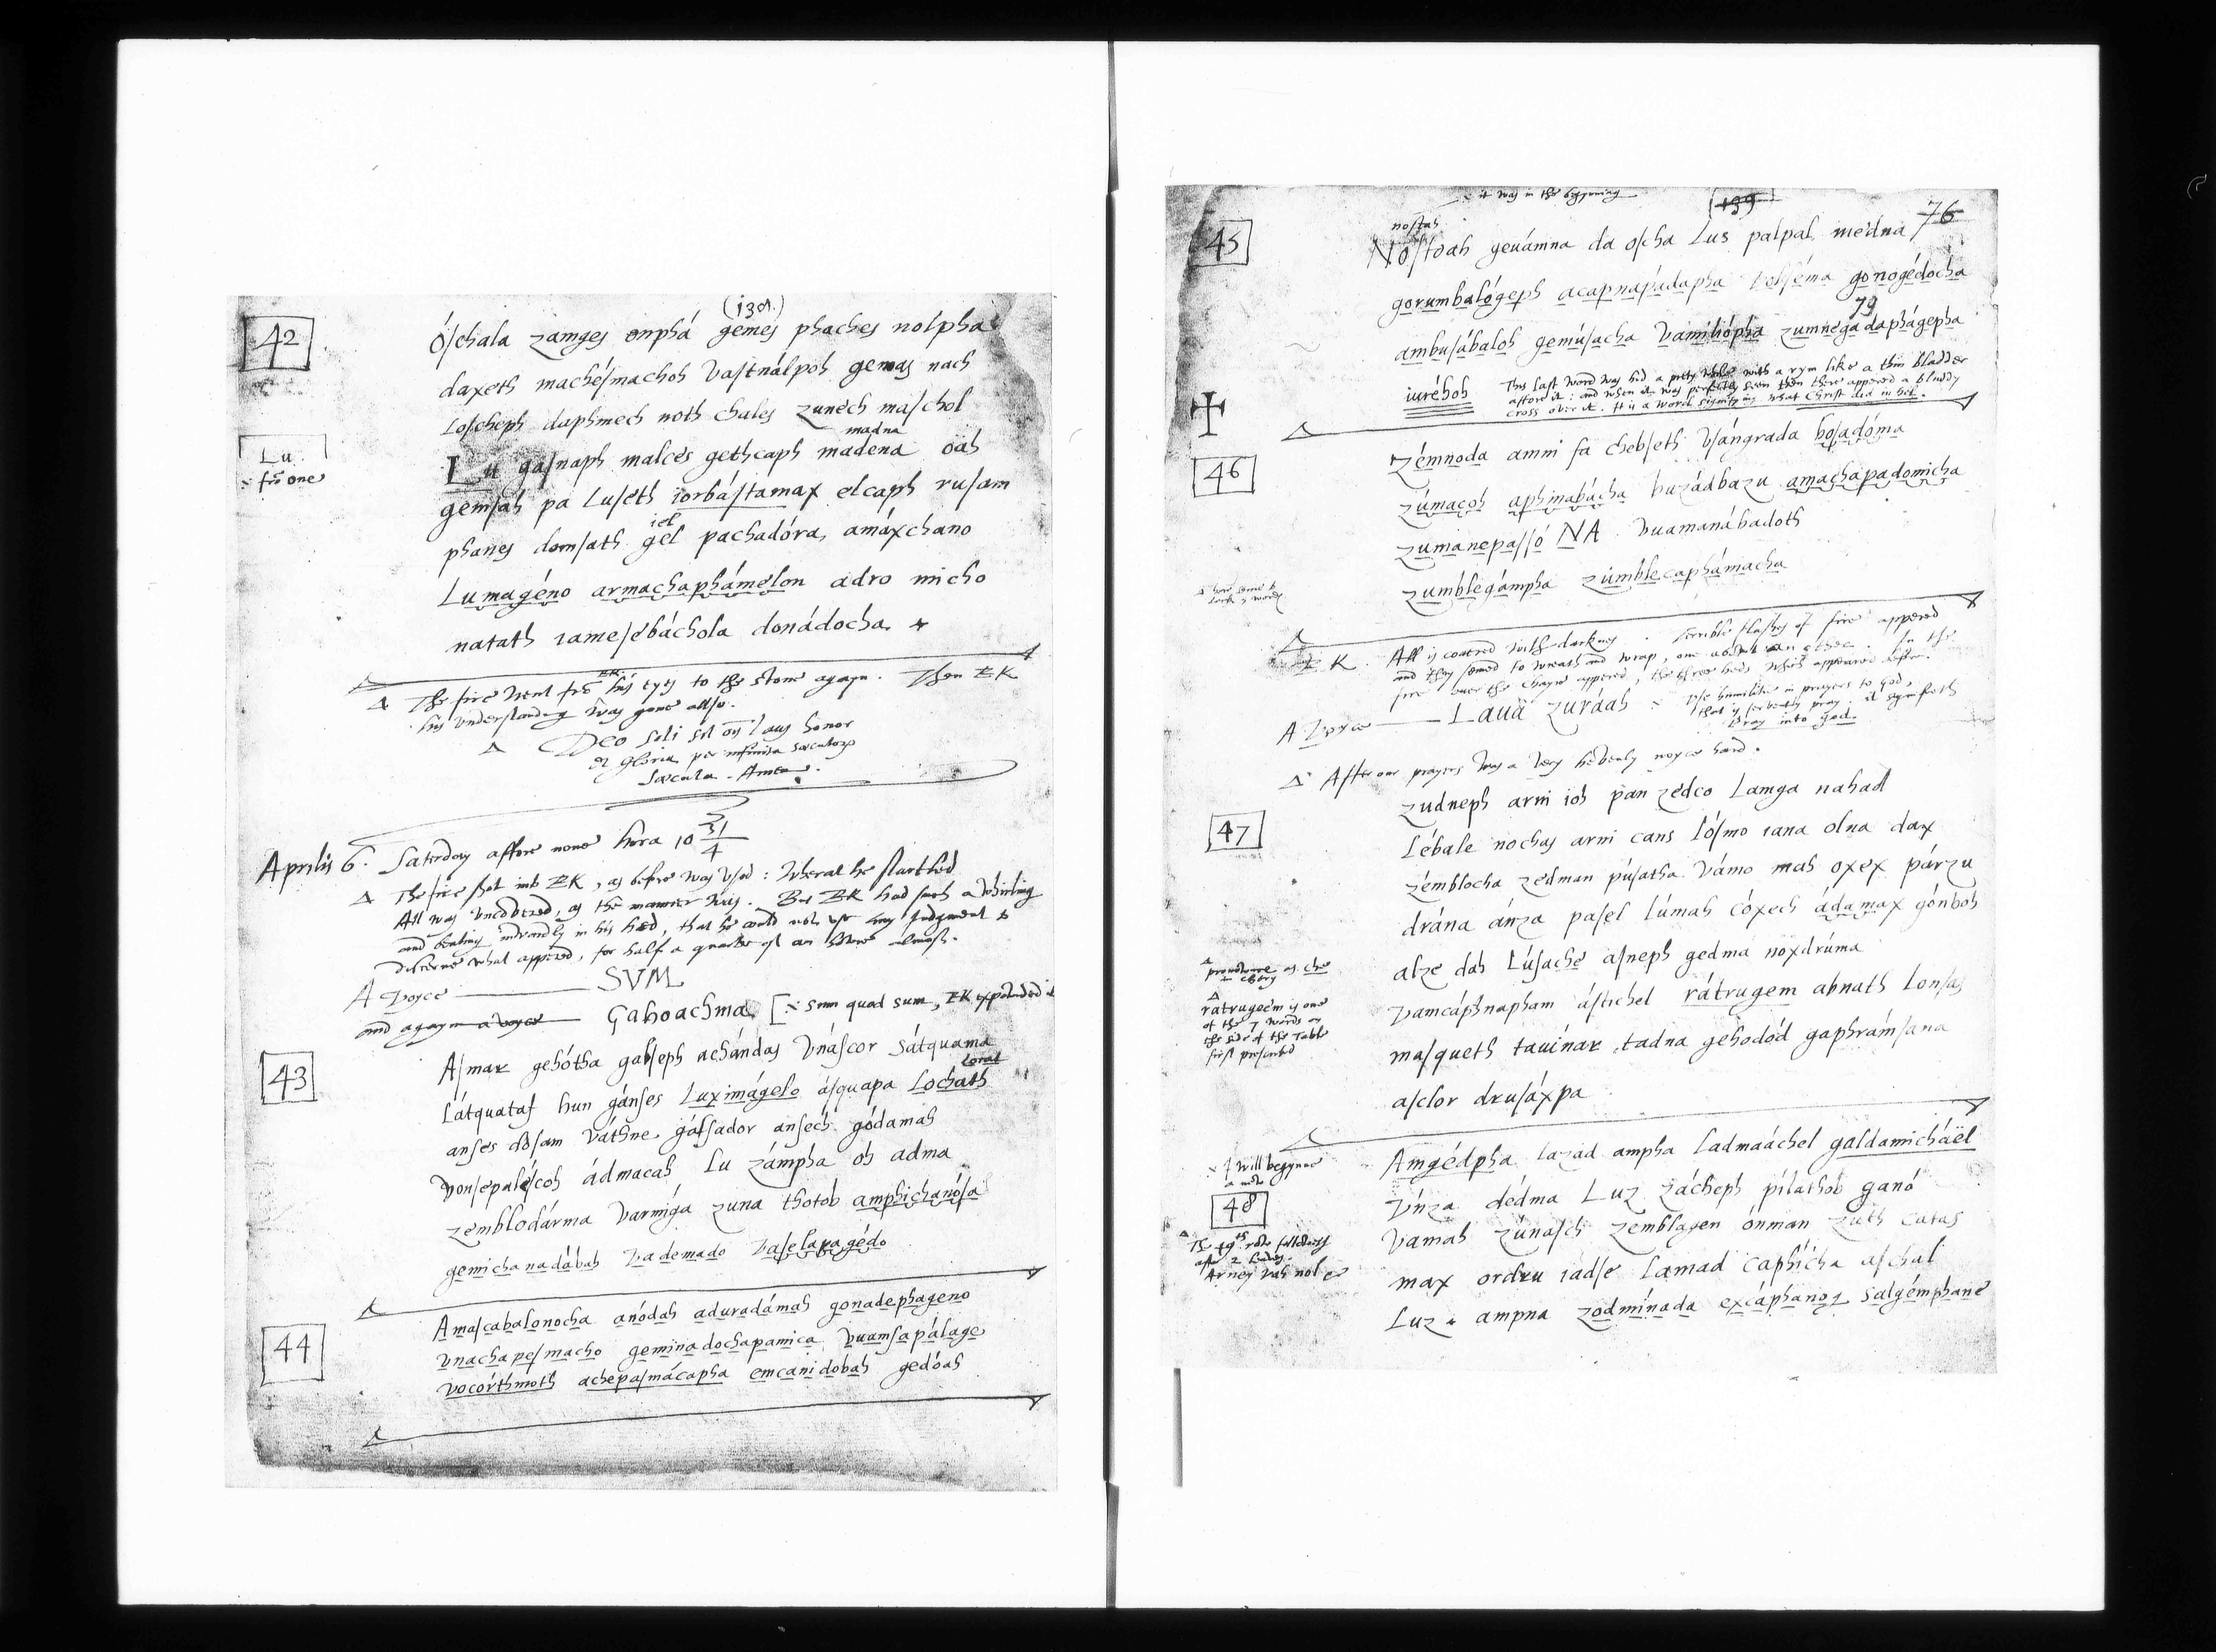 42
Óschala zamges onphá gemes phaches nolpha
daxeth machésmachoh vastnálpoh gemas nach
Loscheph daphmech noth chales zunech maschol
madna
Lu
:- frō one
Lu gasnaph malces gethcaph madena oah
gemsah pa Luseth iorbástamax elcaph rusam
iel
phanes domsath gel pachadóra, amáxchano
Lumagéno armachaphámelon adro micho
natath iamesebáchola donádocha
Δ The fire went frō his eyes to the stone agayn. Then EK
his understanding was gone allso.
Δ Deo soli sit omīs laus honor
et gloria per infinita sæculorū
sæcula. Amen.
Aprilis 6. Saterday affore none hora 10
Δ The fire shot into EK, as before was used: wherat he startled
All was uncovered, as the manner was. But EK had such a whirling
and beating inwardly in his hed, that he could not use any Judgment to
discerne what appered, for half a quarter of an howre almost.
A voyce SVM
and agayn a voyce Gahoachma [:- sum quod sum, EK expownded it
43
Asmar gehótha galseph achándas vnáscor sátquama
Látquataf hun gánses Luximágelo ásquapa Lochath
anses dosam váthne gálsador ansech gódamah
vonsepaléscoh ádmacah Lu zámpha oh adma
zemblodárma varmíga zuna thotob amphichanósa
gemichanadábah vademado vaselapagédo
44
Amascabalonocha anódah aduradámah gonadephageno
vnachapesmacho geminadochapamica vuamsapálage
vocórthmoth achepasmácapha emcanidobah gedóah
:- it was in the begynning
76
45
nostah
Nostoah geuámna da oscha Lus palpal medna
gorumbalógeph acapnapádapha volséma gonogédocha
79
ambusábaloh gemúsacha vamilíópha zumnegadaphágepha
iuréhoh
This last word was hid a prety while with a rym like a thin bladder
affore it: and when it was perfectly seen then there appered a bluddy
cross over it. It is a word signifying what Christ did in hel.
46
Zémnoda amni fa chebseth vsángrada bosadóma
zúmacoh aphinabácha buzádbazu amachapadomicha
zumanepassó NA vuamanábadoth
zumblegámpha zumblecaphámacha
EK. All is covered with darknes. Terrible flashes of fire appered
and they semed to wreath and wrap, one about an other. In the
fire over the chayre appered, the three heds which appeared before.
A voyce Lauá zuráah :- use humilitie in prayers to god,
that is fervently pray. it signifieth
Pray unto God.
Δ After our prayers was a very hevenly noyce hard.
47
zudneph arni ioh pan zedco Lamga nahad
Lébale nochas arni cans lósmo iana olna dax
zémblocha zedman púsatha vámo mah oxex párzu
drána ánza pasel lúmah cóxech ádamax gónboh
alze dah Lúsache asneph gedma noxdrúma
Δ
rátrugeēm is one
of the 7 words on
the side of the Table
first prescribed
vamcáphnapham ástichel rátrugem abnath Lonsas
masqueth tauínar tadna gehodód gaphrámsana
asclor drusáxpa
:- I will begynne
48
Amgédpha lazad ampha ladmaáchel galdamicháël
vnza dédma Luz zácheph pílathob ganó
vamah zúnasch zemblagen ónman zuth catas
max ordru iádse lamad caphícha aschal
Luz ampna zodmínada excáphanos salgémphane